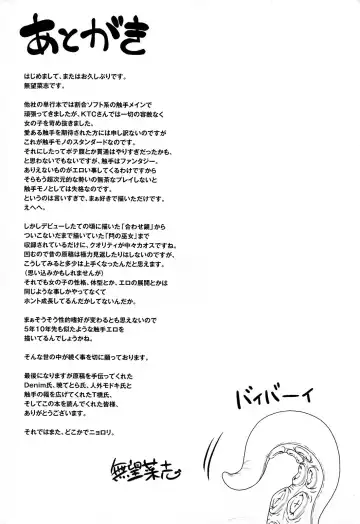 あとがき
はじめまして、またはお久しぶりです。
無望菜志です。
他社の単行本では割合ソフト系の触手メインで
頑張ってきましたが、KTCさんでは一切の容赦なく
女の子を苛め抜きました。
愛ある触手を期待された方には申し訳ないのですが
これが触手モノのスタンダードなのです。
それにしたってボテ腹とか貫通はやりすぎだったかも、
と思わないでもないですが、触手はファンタジー。
ありえないものがエロい事してくるわけですから
そらもう超次元的な勢いの無茶なプレイしないと
触手モノとしては失格なのです。
というのは言いすぎで、まぁ好きで描いてただけです。
えへへ。
しかしデビューしたての頃に描いた「合わせ鏡」から
ついこないだまで描いていた「閂の巫女」まで
収録されているだけに、クオリティが中々カオスですね。
凹むので昔の原稿は極力見返したりはしないのですが、
こうしてみると多少は上手くなったんだと思えます。
（思い込みかもしれませんが）
それでも女の子の性格、体型とか、エロの展開とかは
同じような事しかやってなくて
ホント成長してるんだかしてないんだか。
まぁそうそう性的嗜好が変わるとも思えないので
5年10年先も似たような触手エロを
描いてるんでしょうかね。
そんな世の中が続く事を切に願っております。
最後になりますが原稿を手伝ってくれた
Denim氏、暁てとら氏、人外モドキ氏と
触手の輪を広げてくれたT橋氏、
そしてこの本を読んでくれた皆様、
ありがとうございます。
それではまた、どこかでニョロリ。
無望菜志
バイバーイ